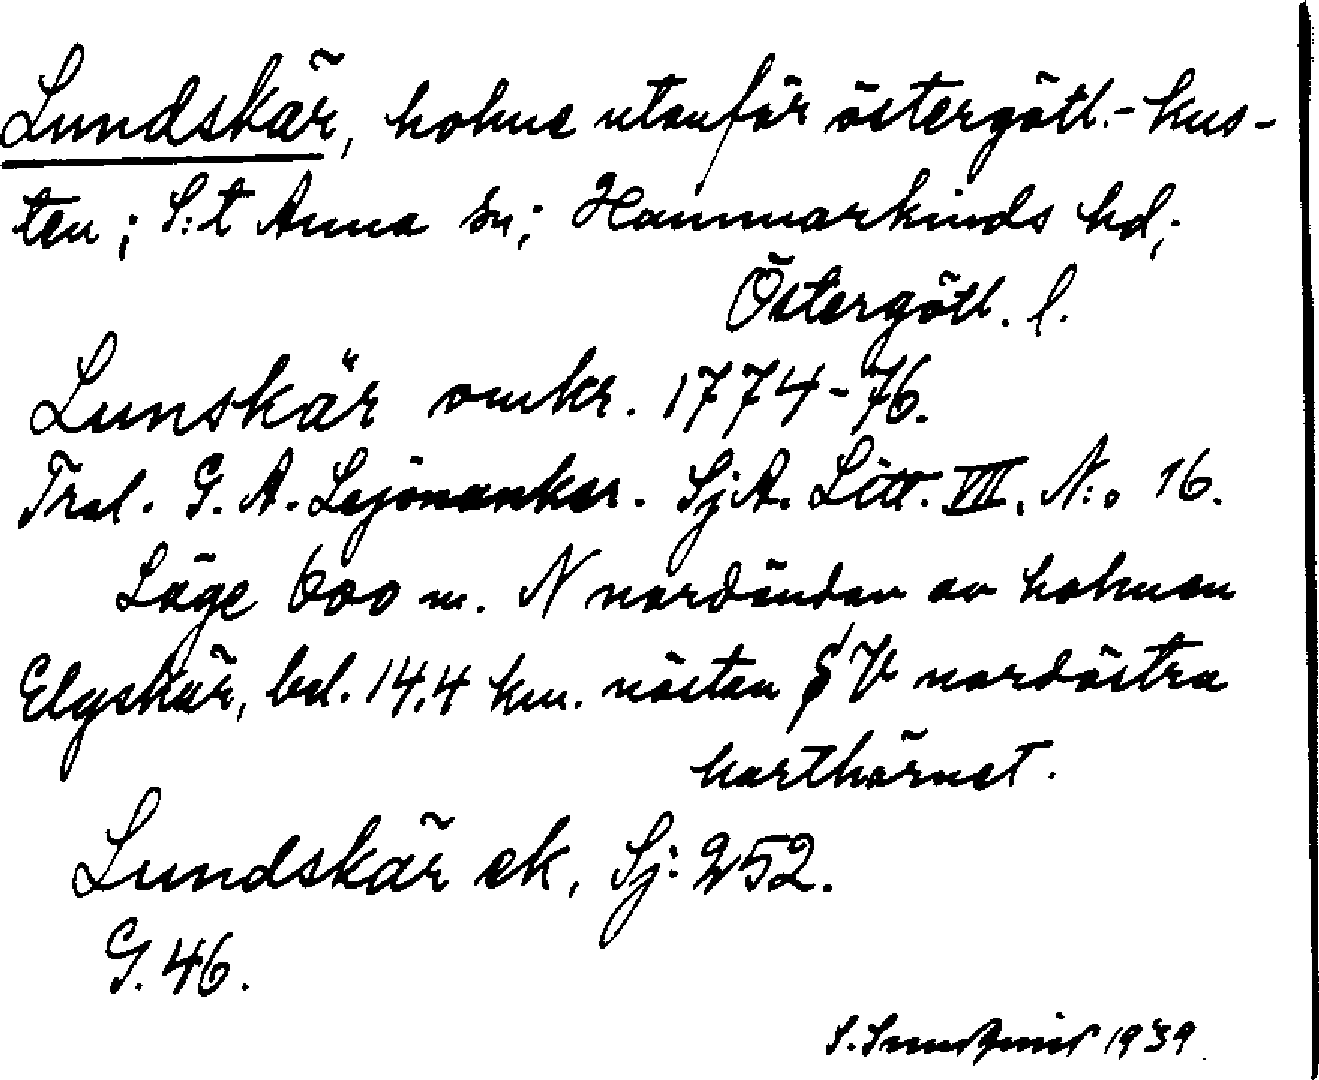 Lundskär, holme utanför östergötl.-kus-
ten; S:t Anna sn; Hammarkinds hd;
Östergötl. l.
Lunskär omkr. 1774-76.
Trol. G. A. Lejonanker. SjA. Litt. VII. N:o 16.
Läge 600 m. N nordändan av holmen
Elgskär, bel. 14,4 km. nästan V nordöstra
karthörnet.
Lundskär ek, Sj: 252.
G. 46.
S. 1939